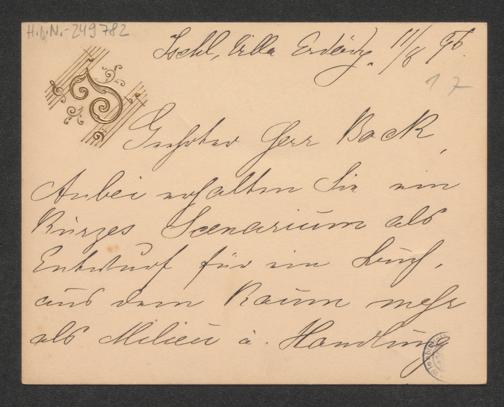 H.I.N.-249782
Ischl, Villa Erdödy. 11/6 96.
17
Geehrter Herr Bock,
Anbei erhalten Sie ein
kurzes Scenarium als
Entwurf für ein Buch,
aus dem kaum mehr
als Milieu u. Handlung